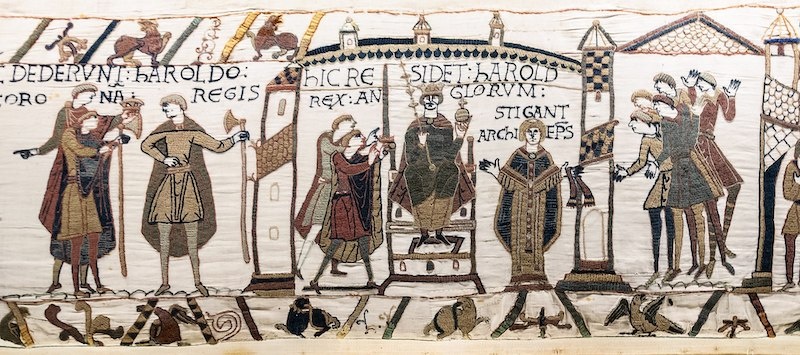 DEDERVNT: hAROLDO:
CORONA: REGIS
hIC RESIDET: hAROLD
REX: ANGLORVM:
STIGANT
ARChIEPS